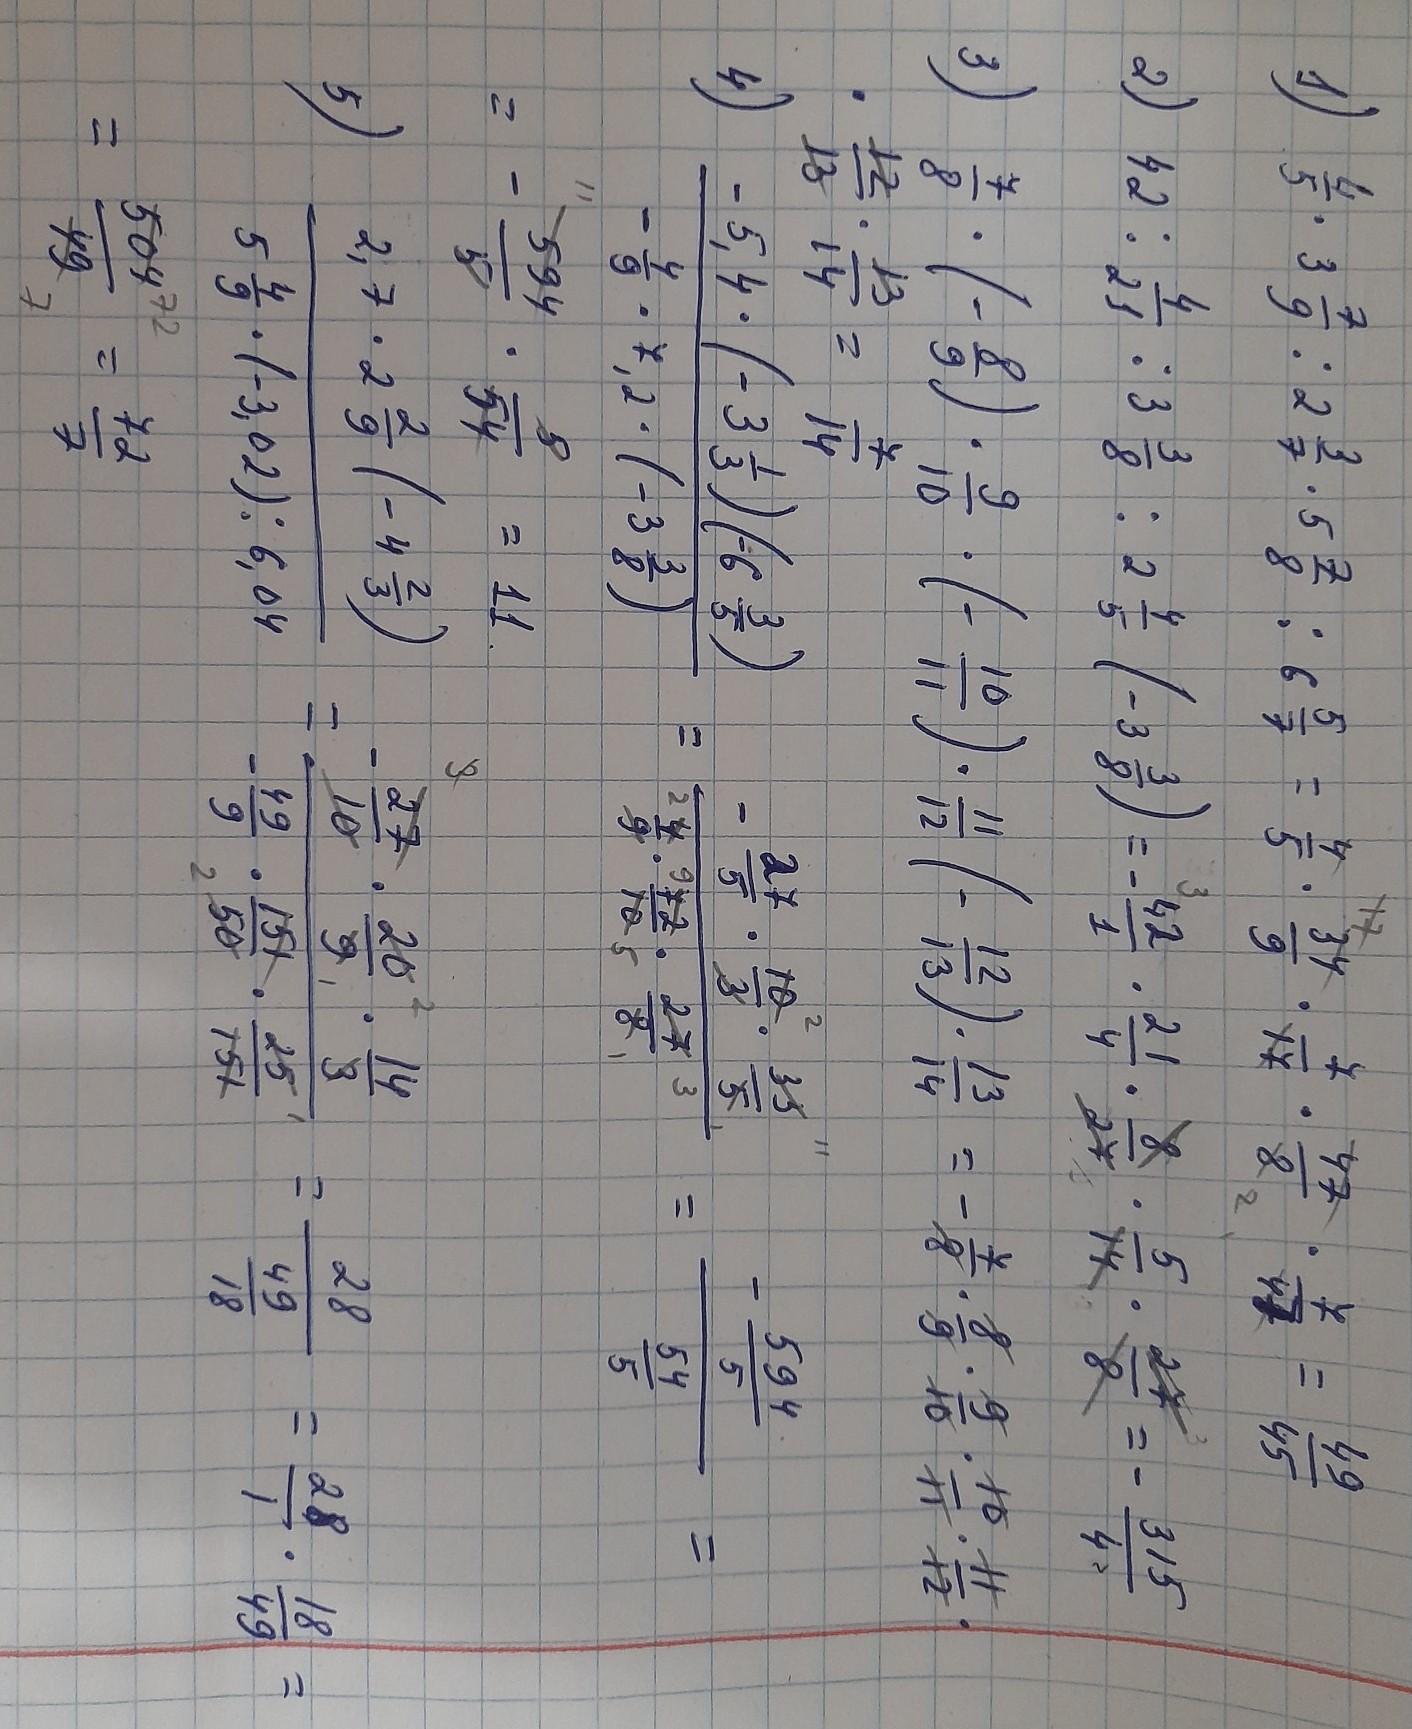 1) 4/5 · 3 7/9 : 2 3/7 · 5 7/8 : 6 5/7 = 4/5 · 34/9 · 7/17 · 47/8 · 7/47 = 49/45
2) 42 : 4/21 : 3 3/8 : 2 4/5 (-3 3/8) = - 42/1 · 21/4 · 8/27 · 5/14 · 27/8 = - 315/4
3) 7/8 · (- 8/9) · 9/10 · (- 10/11) · 11/12 (- 12/13) · 13/14 = - 7/8 · 8/9 · 9/10 · 10/11 · 11/12 ·
· 12/13 · 13/14 = 7/14
4) -5,4 · (-3 1/3)(-6 3/5) / -4/9 · 7,2 · (-3 3/8) = - 27/5 · 10/3 · 33/5 / 4/9 · 72/10 · 27/8 = - 594/5 / 54/5 =
= - 594/5 · 5/54 = 11.
5) 2,7 · 2 2/9 (-4 2/3) / 5 4/9 · (-3,02) : 6,04 = - 27/10 · 20/9 · 14/3 / - 49/9 · 151/50 · 25/151 = 28 / 49/18 = 28/1 · 18/49 =
= 504/49 = 72/7